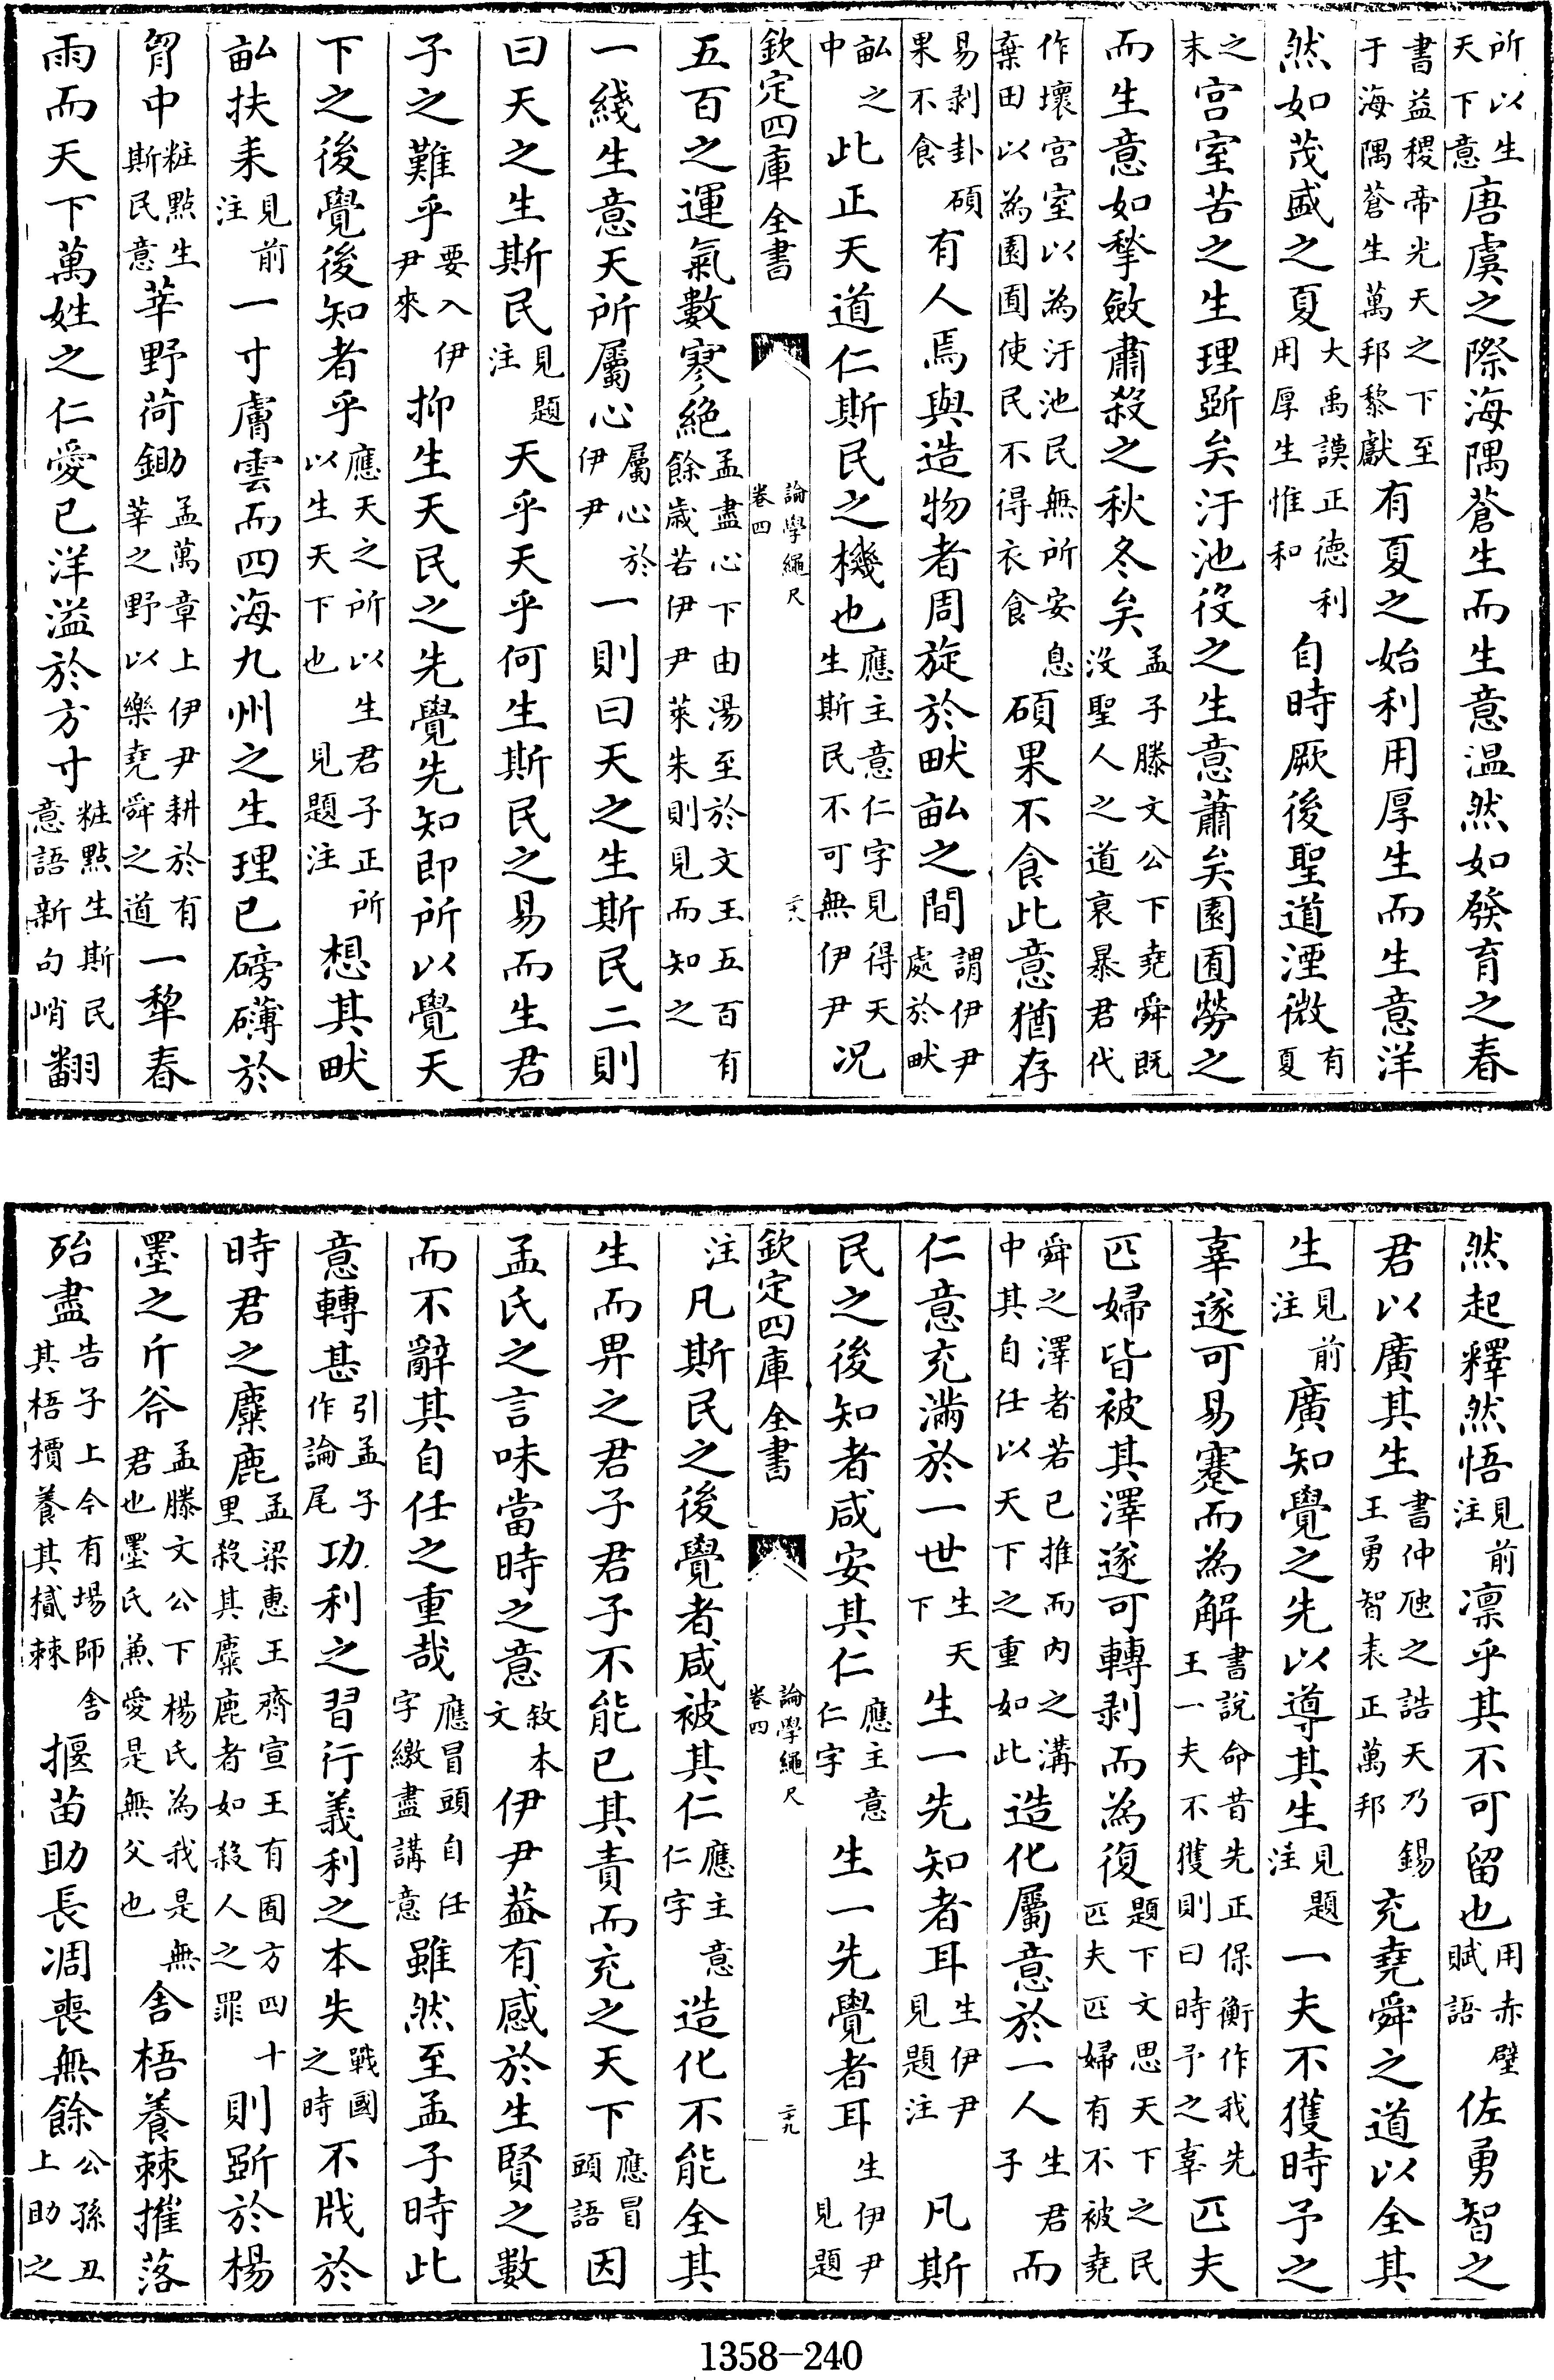 所以生天下意唐虞之際海隅蒼生而生意温然如發育之春
書益稷帝光天之下至于海隅蒼生萬邦黎獻有夏之始利用厚生而生意洋
然如茂盛之夏大禹謨正德利用厚生惟和自時厥後聖道湮微有夏
之末宫室苦之生理斲矣汙池役之生意蕭矣園囿勞之
而生意如揫斂肅殺之秋冬矣孟子滕文公下堯舜既沒聖人之道衰暴君代
作壞宫室以為汙池民無所安息棄田以為園囿使民不得衣食碩果不食此意猶存
易剥卦碩果不食有人焉與造物者周旋於畎畝之間謂伊尹處於畎
畝之中此正天道仁斯民之機也應主意仁字見得天生斯民不可無伊尹况
欽定四庫全書
論學繩尺
卷四
二十八
五百之運氣數寥絶孟盡心下由湯至於文王五百有餘歲若伊尹萊朱則見而知之
一綫生意天所屬心屬心於伊尹一則曰天之生斯民二則
曰天之生斯民見題注天乎天乎何生斯民之易而生君
子之難乎要入伊尹來抑生天民之先覺先知即所以覺天
下之後覺後知者乎應天之所以生君子正所以生天下也見題注想其畎
畝扶耒見前注一寸膚雲而四海九州之生理已磅礴於
胷中粧點生斯民意莘野荷鋤孟萬章上伊尹耕於有莘之野以樂堯舜之道一犂春
雨而天下萬姓之仁愛已洋溢於方寸粧點生斯民意語新句峭翻
然起釋然悟見前注凛乎其不可留也用赤壁賦語佐勇智之
君以廣其生書仲虺之誥天乃錫王勇智表正萬邦充堯舜之道以全其
生見前注廣知覺之先以導其生見題注一夫不獲時予之
辜遂可易蹇而為解書說命昔先正保衡作我先王一夫不獲則曰時予之辜匹夫
匹婦皆被其澤遂可轉剥而為復題下文思天下之民匹夫匹婦有不被堯
舜之澤者若已推而内之溝中其自任以天下之重如此造化屬意於一人生君子而
仁意充滿於一世生天下生一先知者耳生伊尹見題注凡斯
民之後知者咸安其仁應主意仁字生一先覺者耳生伊尹見題
欽定四庫全書
論學繩尺
卷四
二十九
注凡斯民之後覺者咸被其仁應主意仁字造化不能全其
生而畀之君子君子不能已其責而充之天下應冒頭語因
孟氏之言味當時之意敘本文伊尹葢有感於生賢之數
而不辭其自任之重哉應冒頭自任字繳盡講意雖然至孟子時此
意轉甚引孟子作論尾功利之習行義利之本失戰國之時不戕於
時君之麋鹿孟梁惠王齊宣王有囿方四十里殺其麋鹿者如殺人之罪則斲於楊
墨之斤斧孟滕文公下楊氏為我是無君也墨氏兼愛是無父也舎梧養棘摧落
殆盡告子上今有場師舎其梧檟養其樲棘揠苗助長凋喪無餘公孫丑上助之
1358-240